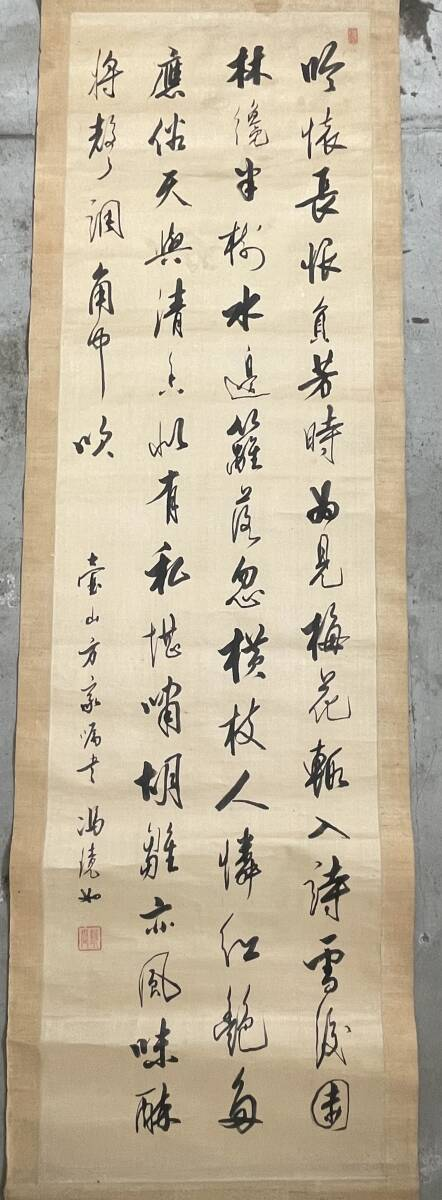 吟懷長恨負芳時為見梅花輒入詩雪後園
林纔半樹水邊籬落忽橫枝人憐紅艷多
應俗天與清香似有私堪嘯胡雛亦風味解
將聲調角中吹
壺山方家嘱書 馮鏡如